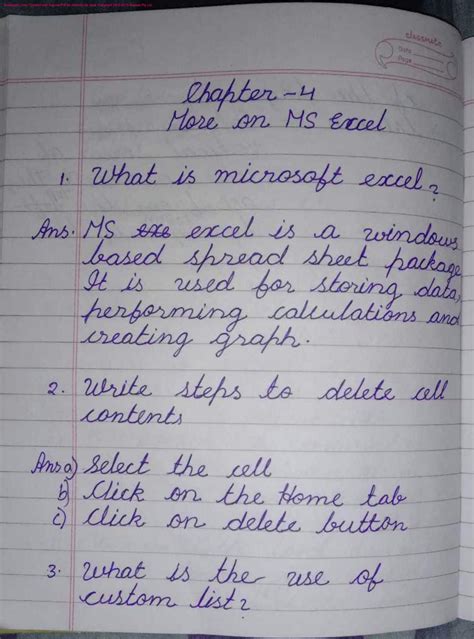 classmate
Date
Page
Chapter - 4
More on MS Excel
1. What is microsoft excel?
Ans. MS excel is a windows
based spread sheet package.
It is used for storing data,
performing calculations and
creating graph.
2. Write steps to delete cell
contents
Ans a) Select the cell
b) Click on the Home tab
c) Click on delete button
3. What is the use of
custom list?